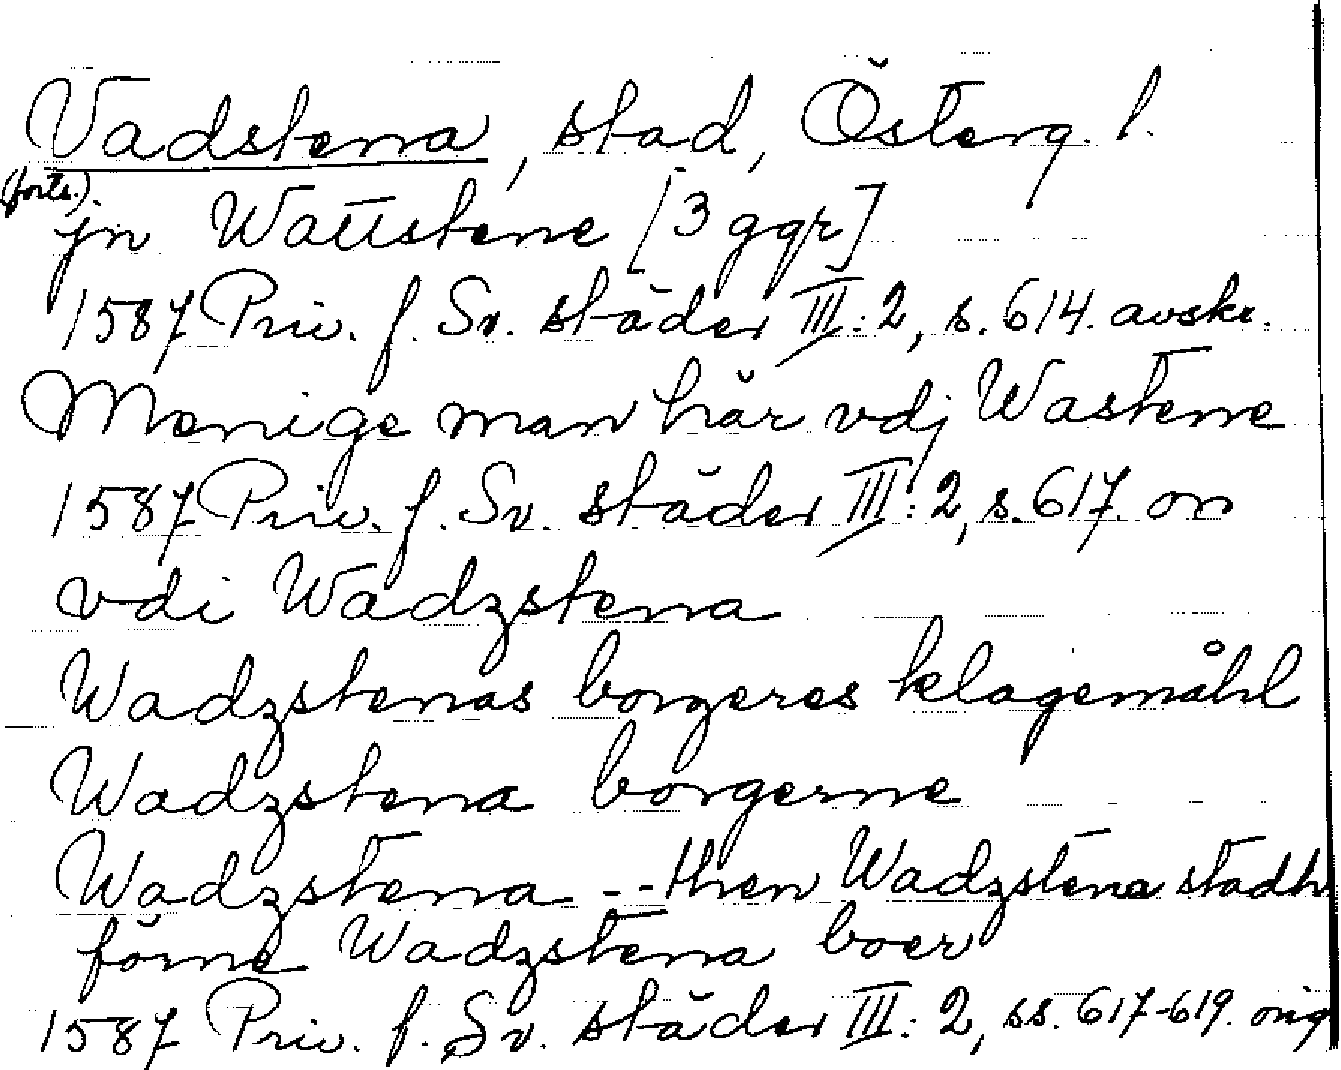 Vadstena, stad, Österg. l.
(forts.).
jn Wattstene [3 ggr]
1587 Priv. f. Sv. städer III: 2, s. 614. avskr.
Menige man här vdj Wastene
1587 Priv. f. Sv. städer III: 2, s. 617. or
vdi Wadzstena
Wadzstenas borgeres klagemåhl
Wadzstena borgerne
Wadzstena -- then Wadzstena stadh
förne Wadzstena boer
1587 Priv. f. Sv. städer III: 2, ss. 617-619. orig